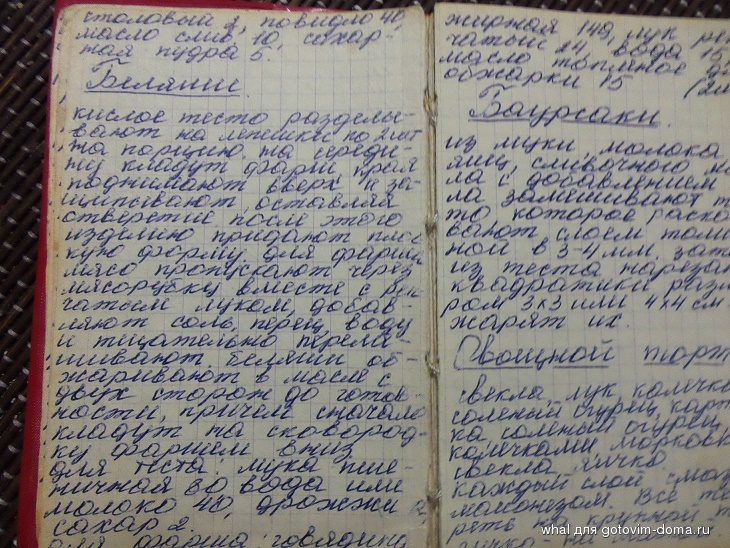 столовый 2, повидло 40,
масло слив 10, сахар-
ная пудра 5.
Беляши
кислое тесто разделы-
вают на лепешки по 2 шт
на порцию, на середи-
ну кладут фарш, края
поднимают вверх и за-
щипывают, оставляя
отверстие, после этого
изделию придают плос-
кую форму. для фарша
мясо пропускают через
мясорубку вместе с реп-
чатым луком, добав-
ляют соль, перец, воду
и тщательно переме-
шивают. беляши об-
жаривают в масле с
двух сторон до готов-
ности, причем сначало
кладут на сковород-
ку фаршем вниз
для теста: мука пше-
ничная 80 вода или
молоко 40, дрожжи 2,
сахар 2.
для фарша: говядина
жирная 140, лук реп
чатый 14, вода 15,
масло топленое для
обжарки 15 (2ш
Баурсаки.
из муки, молока
яиц, сливочного мас
ла с добавлением
ла замешивают т
то которое раска
вают слоем толщи
ной в 3-4 мм. зат
из теста нарезаю
квадратики разм
ром 3х3 или 4х4 см.
жарят их.
Овощной торт
свекла, лук колечка
соленый огурец, карт
ка соленый огурец
колечками морковь
свекла яичко.
каждый слой смаз
майонезом. Все те
реть на крупной т
whal для gotovim-doma.ru